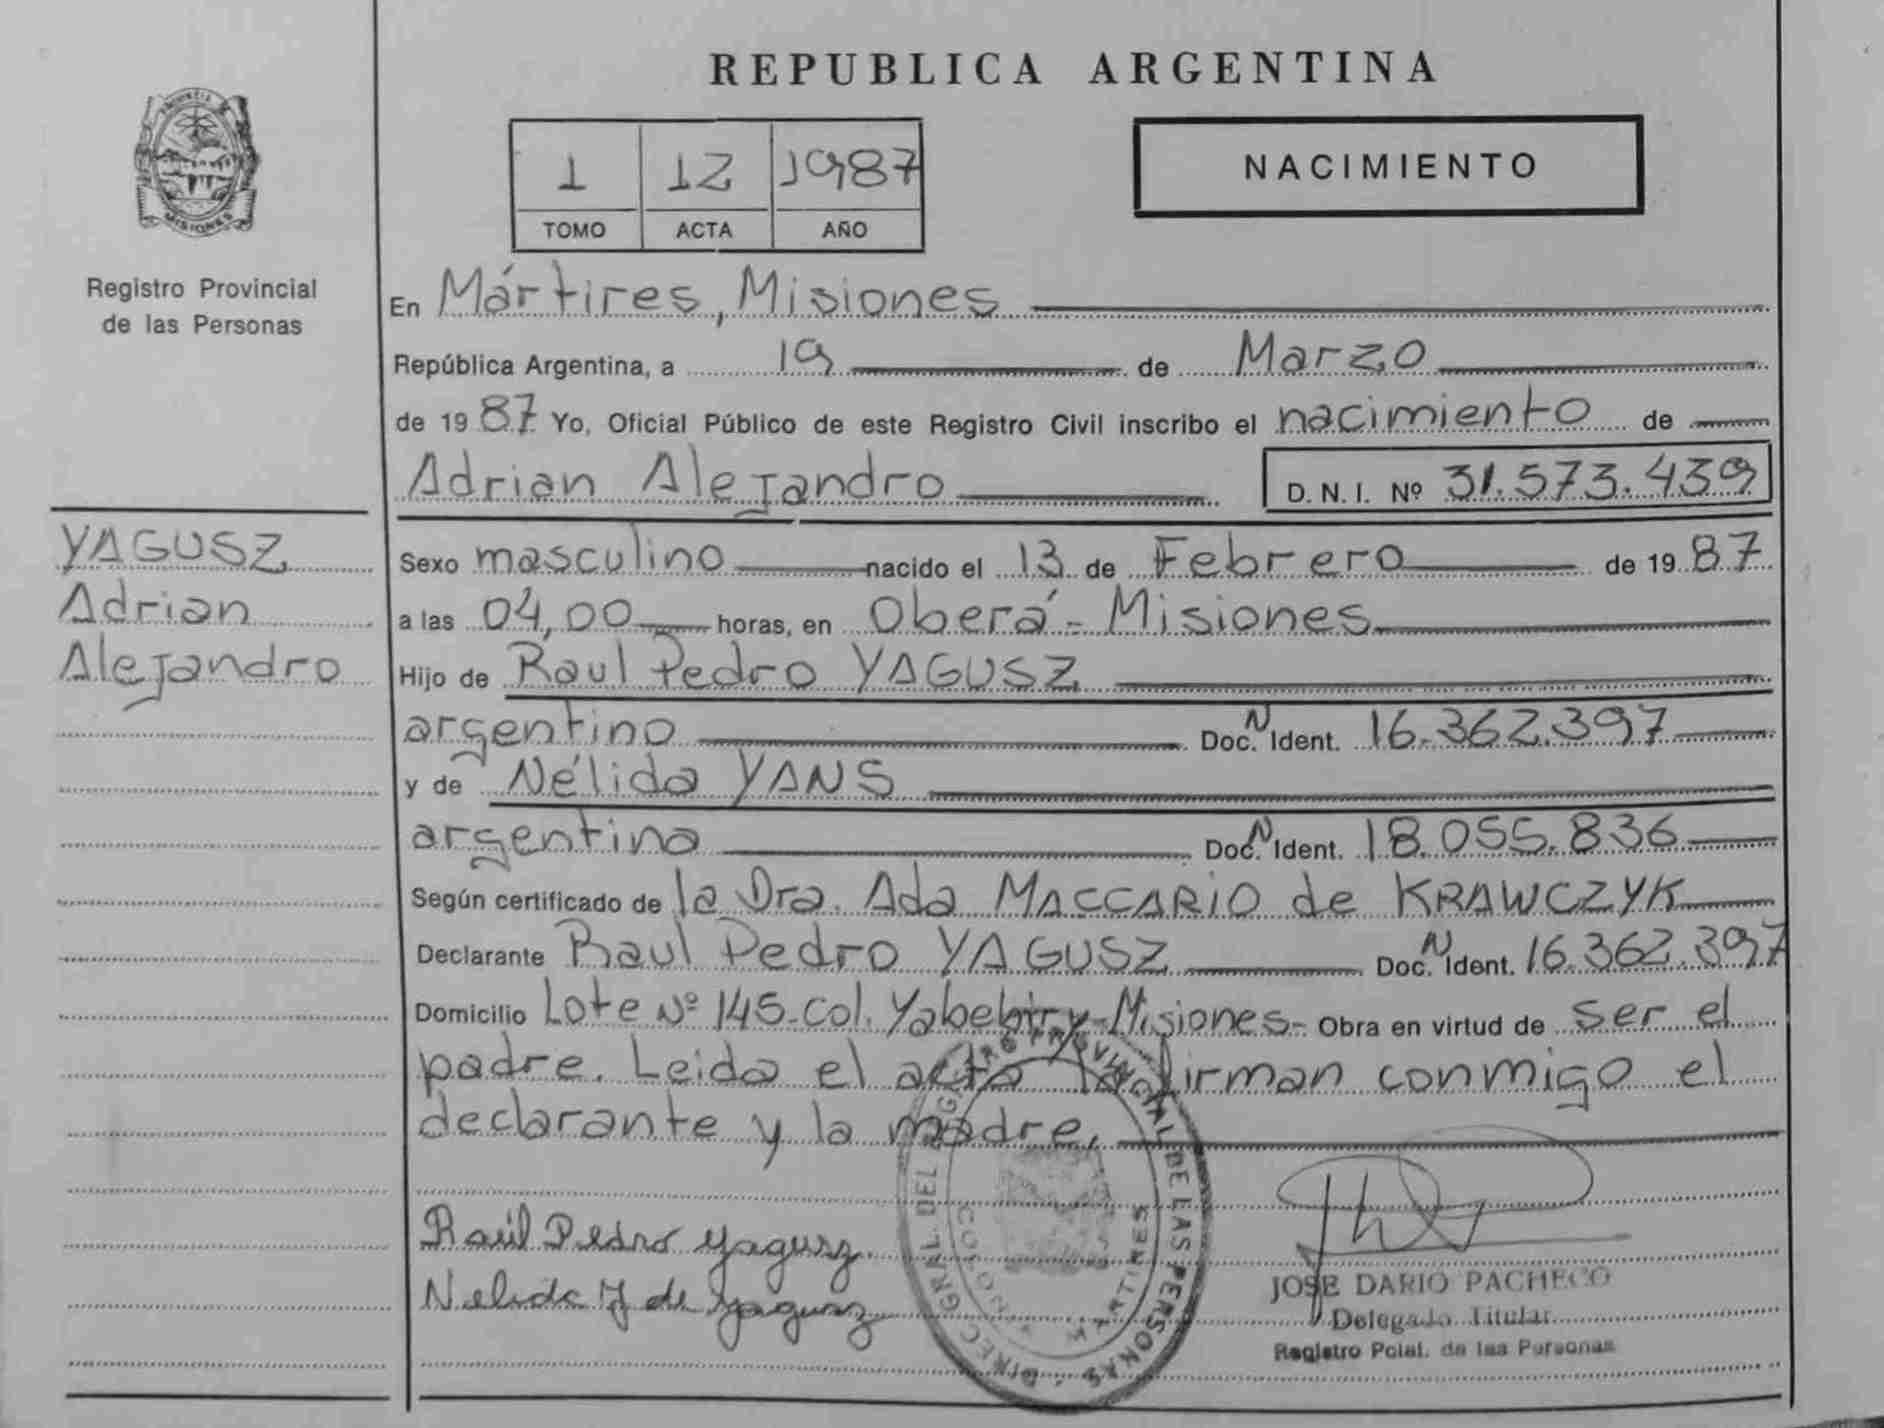 REPUBLICA ARGENTINA
PROVINCIA DE
MISIONES
Registro Provincial
de las Personas
1 12 1987
TOMO ACTA AÑO
NACIMIENTO
En Mártires, Misiones
República Argentina, a 19 de Marzo
de 1987 Yo, Oficial Público de este Registro Civil inscribo el nacimiento de
Adrian Alejandro D. N. I. Nº 31.573.439
YAGUSZ
Adrian
Alejandro
Sexo masculino nacido el 13 de Febrero de 1987
a las 04,00 horas, en Oberá - Misiones
Hijo de Raul Pedro YAGUSZ
argentino Doc. N Ident. 16.362.397
y de Nélida YANS
argentina Doc. N Ident. 18.055.836
Según certificado de la Dra. Ada MACCARIO de KRAWCZYK
Declarante Raul Pedro YAGUSZ Doc. N Ident. 16.362.397
Domicilio Lote Nº 145-Col. Yabebiry-Misiones- Obra en virtud de ser el
padre. Leida el acta la firman conmigo el
declarante y la madre.
Raúl Pedro Yagusz
Nelida Y de Yagusz
DIREC. GRAL. DEL REGISTRO PROVINCIAL DE LAS PERSONAS
MARTIRES
JOSE DARIO PACHECO
Delegado Titular
Registro Pcial. de las Personas